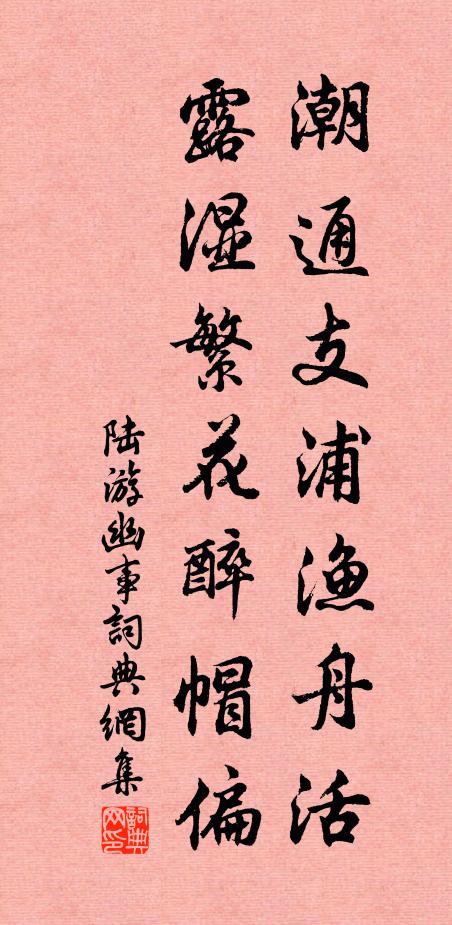 潮通支浦漁舟活
露濕繁花醉帽偏
陆游幽事詞典網集
詞典网印